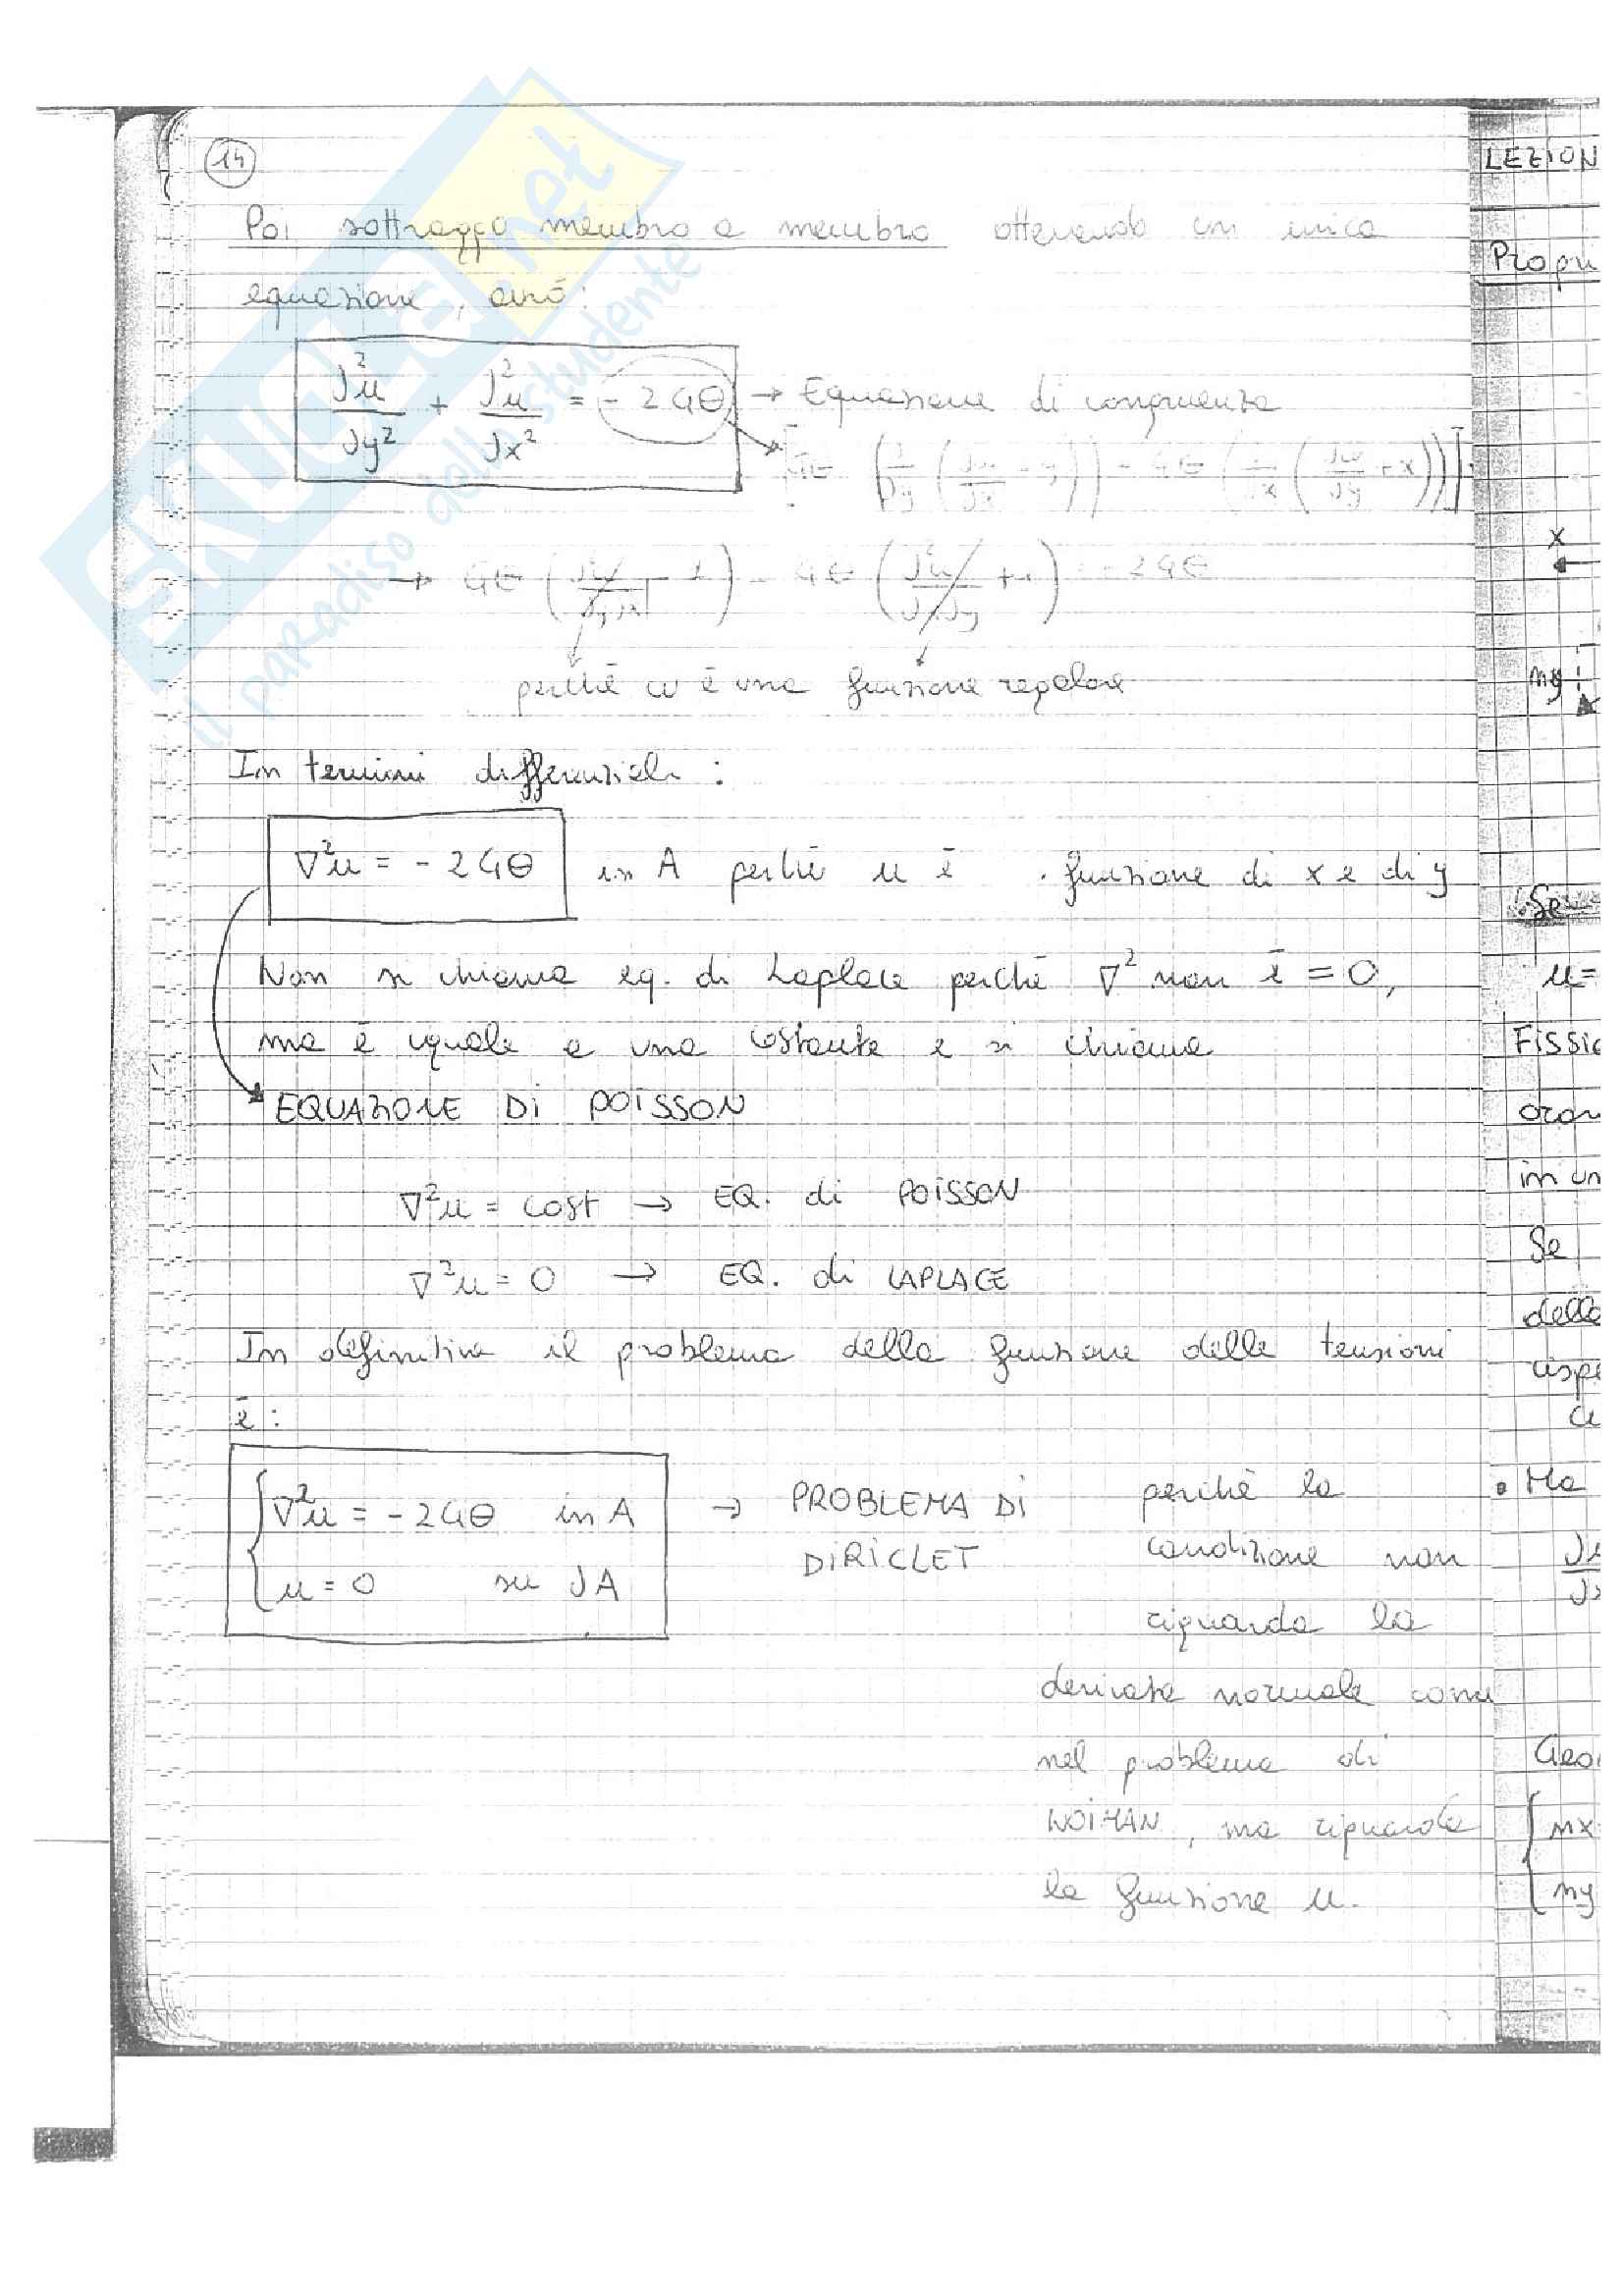 14
Poi sottraggo membro a membro ottenendo un'unica
equazione, avrò:
∂²u/∂y² + ∂²u/∂x² = -2Gθ → Equazione di congruenza
[Gθ (∂/∂y (∂w/∂x - y)) - Gθ (∂/∂x (∂w/∂y + x))]
→ Gθ (∂²w/∂y∂x - 1) - Gθ (∂²w/∂x∂y + 1) = -2Gθ
perchè w è una funzione regolare
In termini differenziali:
∇²u = -2Gθ in A perchè u è funzione di x e di y
Non si chiama eq. di Laplace perchè ∇² non è = 0,
ma è uguale a una costante e si chiama
EQUAZIONE DI POISSON
∇²u = cost → EQ. di POISSON
∇²u = 0 → EQ. di LAPLACE
In definitiva il problema della funzione delle tensioni
è:
{∇²u = -2Gθ in A → PROBLEMA DI perchè la
{u = 0 su ∂A DIRICLET condizione non
riguarda la
derivata normale come
nel problema di
NOIMAN, ma riguarda
la funzione u.
LEZION
Propri
x
ny
Se
u=
FISSIC
oran
in un
Se
delle
rispe
Ma
Geo
{mx
{my
SKUOLA.net
il paradiso dello studente